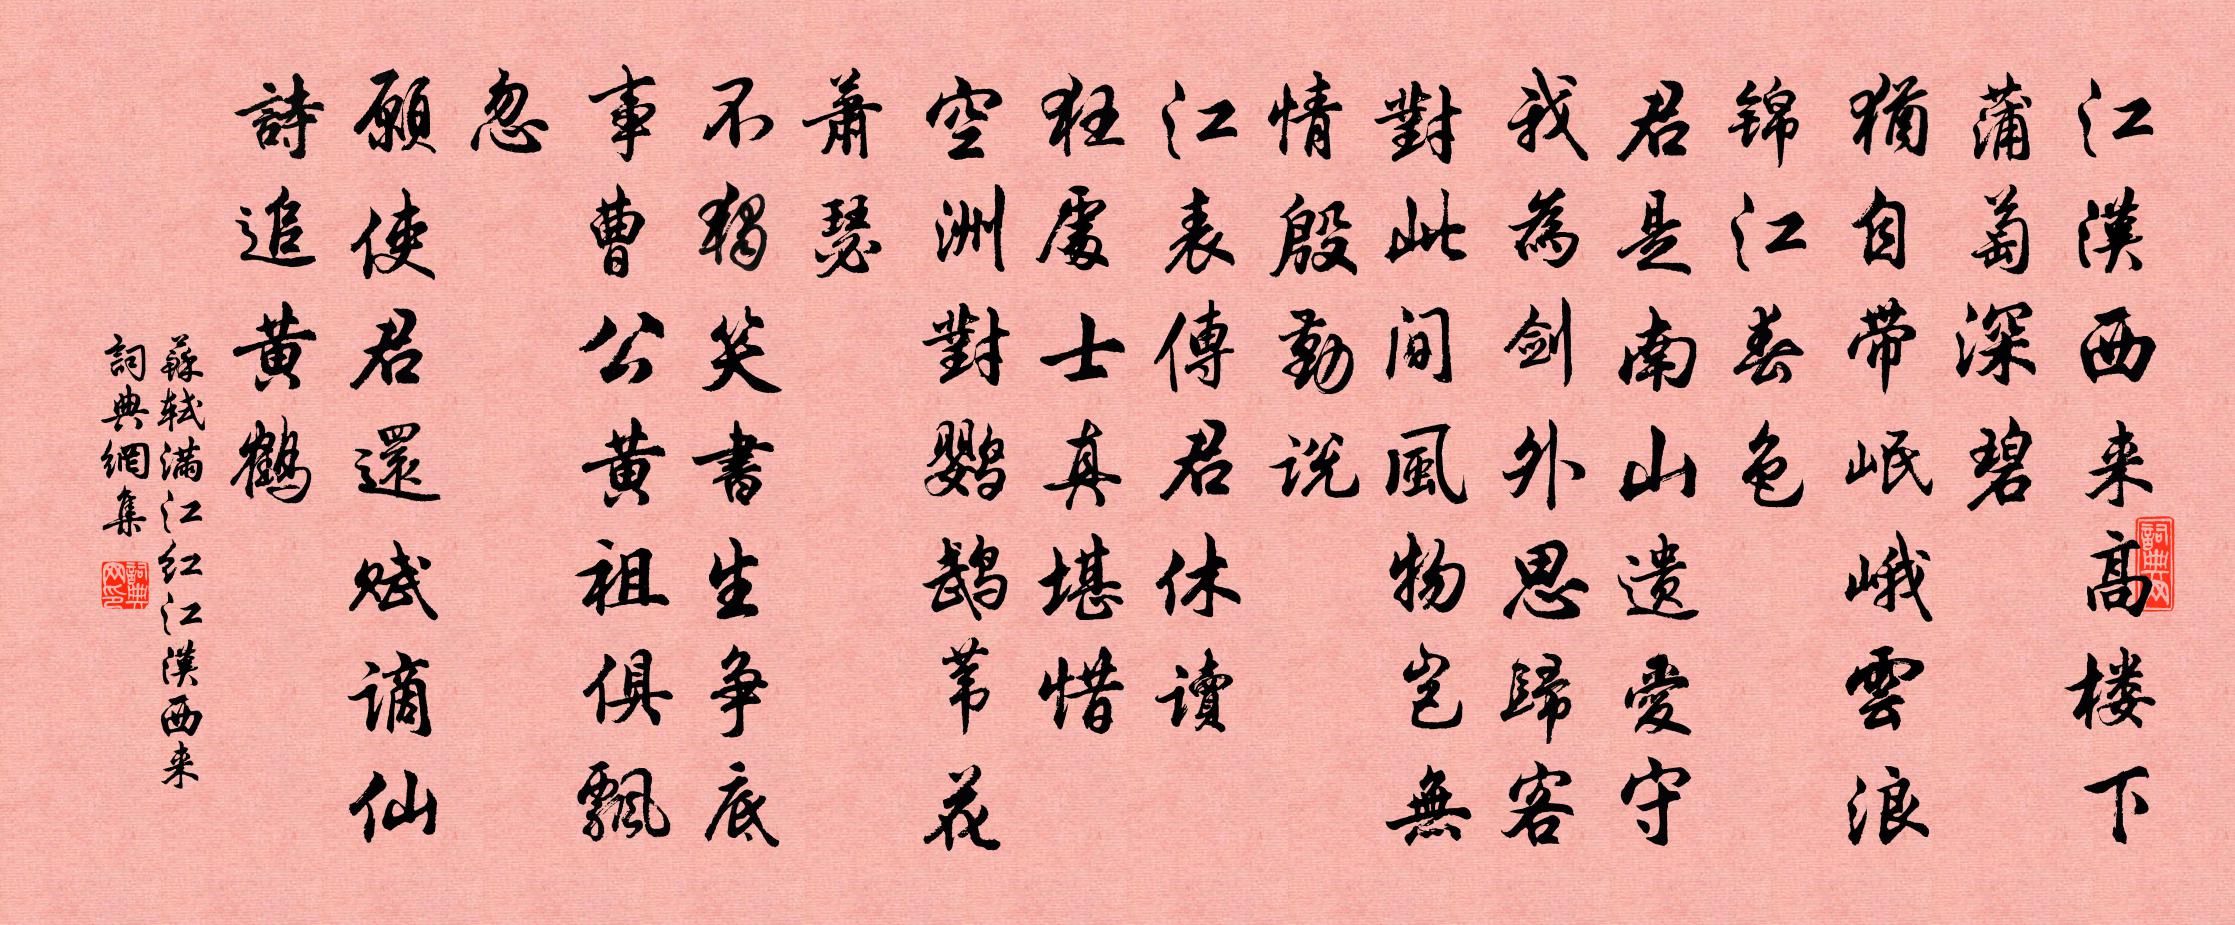 江漢西来高楼下
蒲萄深碧
猶自带岷峨雲浪
锦江春色
君是南山遗愛守
我為剑外思歸客
對此间風物岂無
情殷勤说
江表傳君休读
狂處士真堪惜
空洲對鹦鹉苇花
萧瑟
不独笑書生争底
事曹公黄祖俱飄
忽
願使君還赋谪仙
詩追黄鶴
蘇轼满江红江漢西来
詞典網集
詞典网
詞典网印